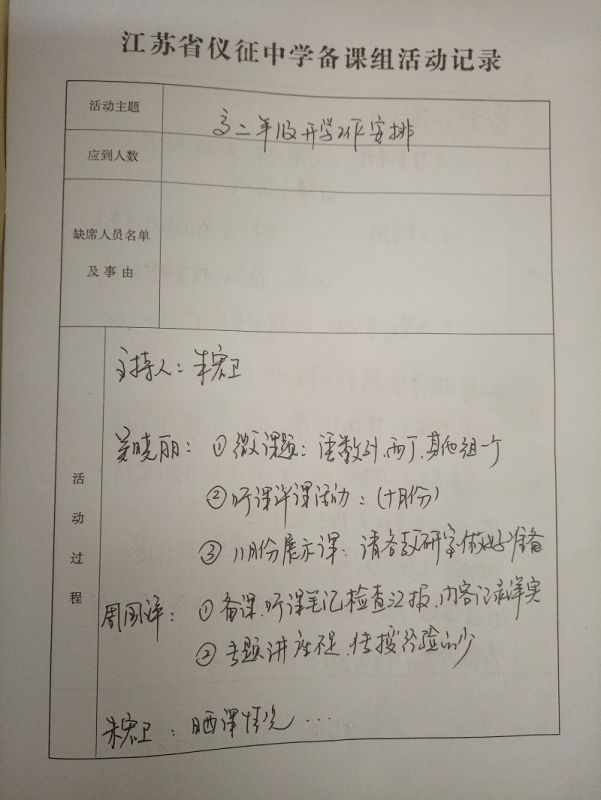 江苏省仪征中学备课组活动记录
活动主题
高二年级开学工作安排
应到人数
缺席人员名单
及事由
活动过程
主持人：朱宏卫
吴晓丽：①微课题：语数外，两个，其他组一个
②听课评课活动：（十月份）
③11月份展示课：请各教研室做好准备
周国泽：①备课，听课笔记检查汇报，内容记录详实
②专题讲座不足，传授经验的少
朱宏卫：晒课情况…